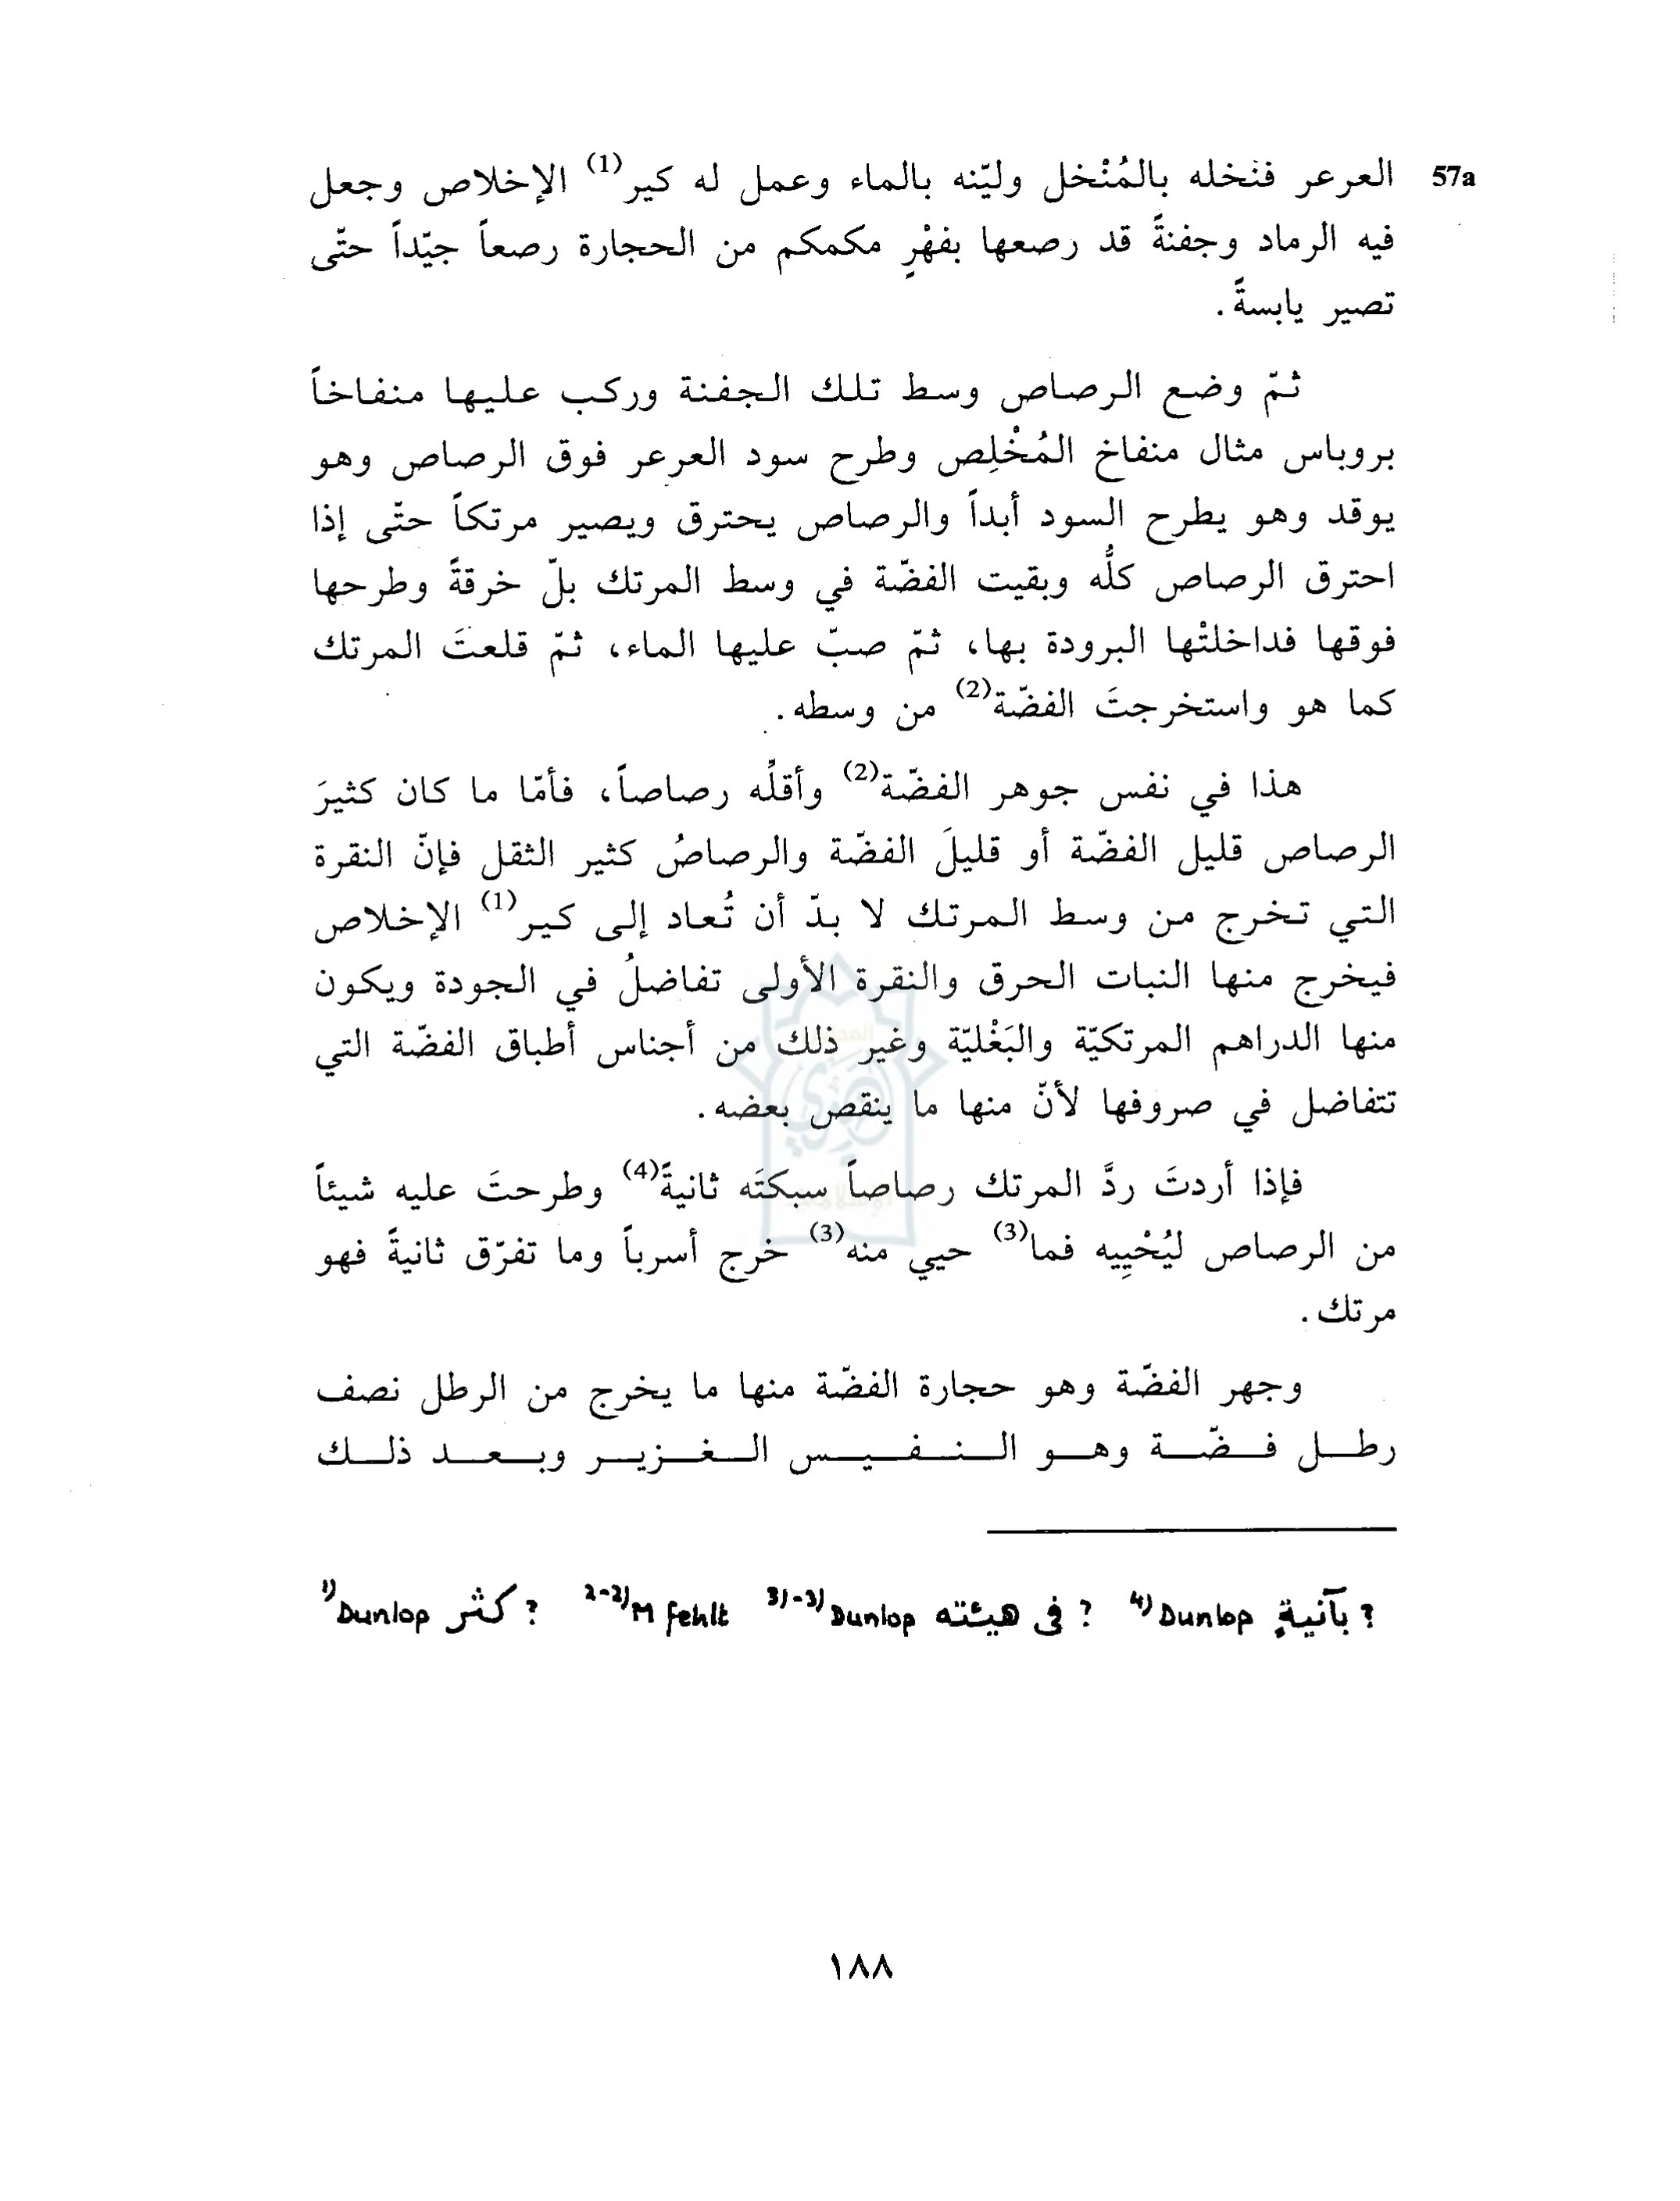 57a العرعر فنْخله بالمُنْخل وليّنه بالماء وعمل له كير(1) الإخلاص وجعل
فيه الرماد وجفنةً قد رصعها بفهْرٍ مكمكم من الحجارة رصعاً جيّداً حتّى
تصير يابسةً.
ثمّ وضع الرصاص وسط تلك الجفنة وركب عليها منفاخاً
بروباس مثال منفاخ المُخْلِص وطرح سود العرعر فوق الرصاص وهو
يوقد وهو يطرح السود أبداً والرصاص يحترق ويصير مرتكاً حتّى إذا
احترق الرصاص كلُّه وبقيت الفضّة في وسط المرتك بلّ خرقةً وطرحها
فوقها فداخلتْها البرودة بها، ثمّ صبّ عليها الماء، ثمّ قلعتَ المرتك
كما هو واستخرجتَ الفضّة(2) من وسطه.
هذا في نفس جوهر الفضّة(2) وأقلِّه رصاصاً، فأمّا ما كان كثيرَ
الرصاص قليل الفضّة أو قليلَ الفضّة والرصاصُ كثير الثقل فإنّ النقرة
التي تخرج من وسط المرتك لا بدّ أن تُعاد إلى كير(1) الإخلاص
فيخرج منها النبات الحرق والنقرة الأولى تفاضلُ في الجودة ويكون
منها الدراهم المرتكيّة والبَغْليّة وغير ذلك من أجناس أطباق الفضّة التي
تتفاضل في صروفها لأنّ منها ما ينقص بعضه.
فإذا أردتَ ردَّ المرتك رصاصاً سبكتَه ثانيةً(4) وطرحتَ عليه شيئاً
من الرصاص ليُحْيِيه فما(3) حيي منه(3) خرج أسرباً وما تفرّق ثانيةً فهو
مرتك.
وجهر الفضّة وهو حجارة الفضّة منها ما يخرج من الرطل نصف
رطل فضّة وهو النفيس الغزير وبعد ذلك
1) Dunlop كثر ? 2-2) M fehlt 3)-3) Dunlop في هيئته ? 4) Dunlop بآنيةٍ ?
١٨٨